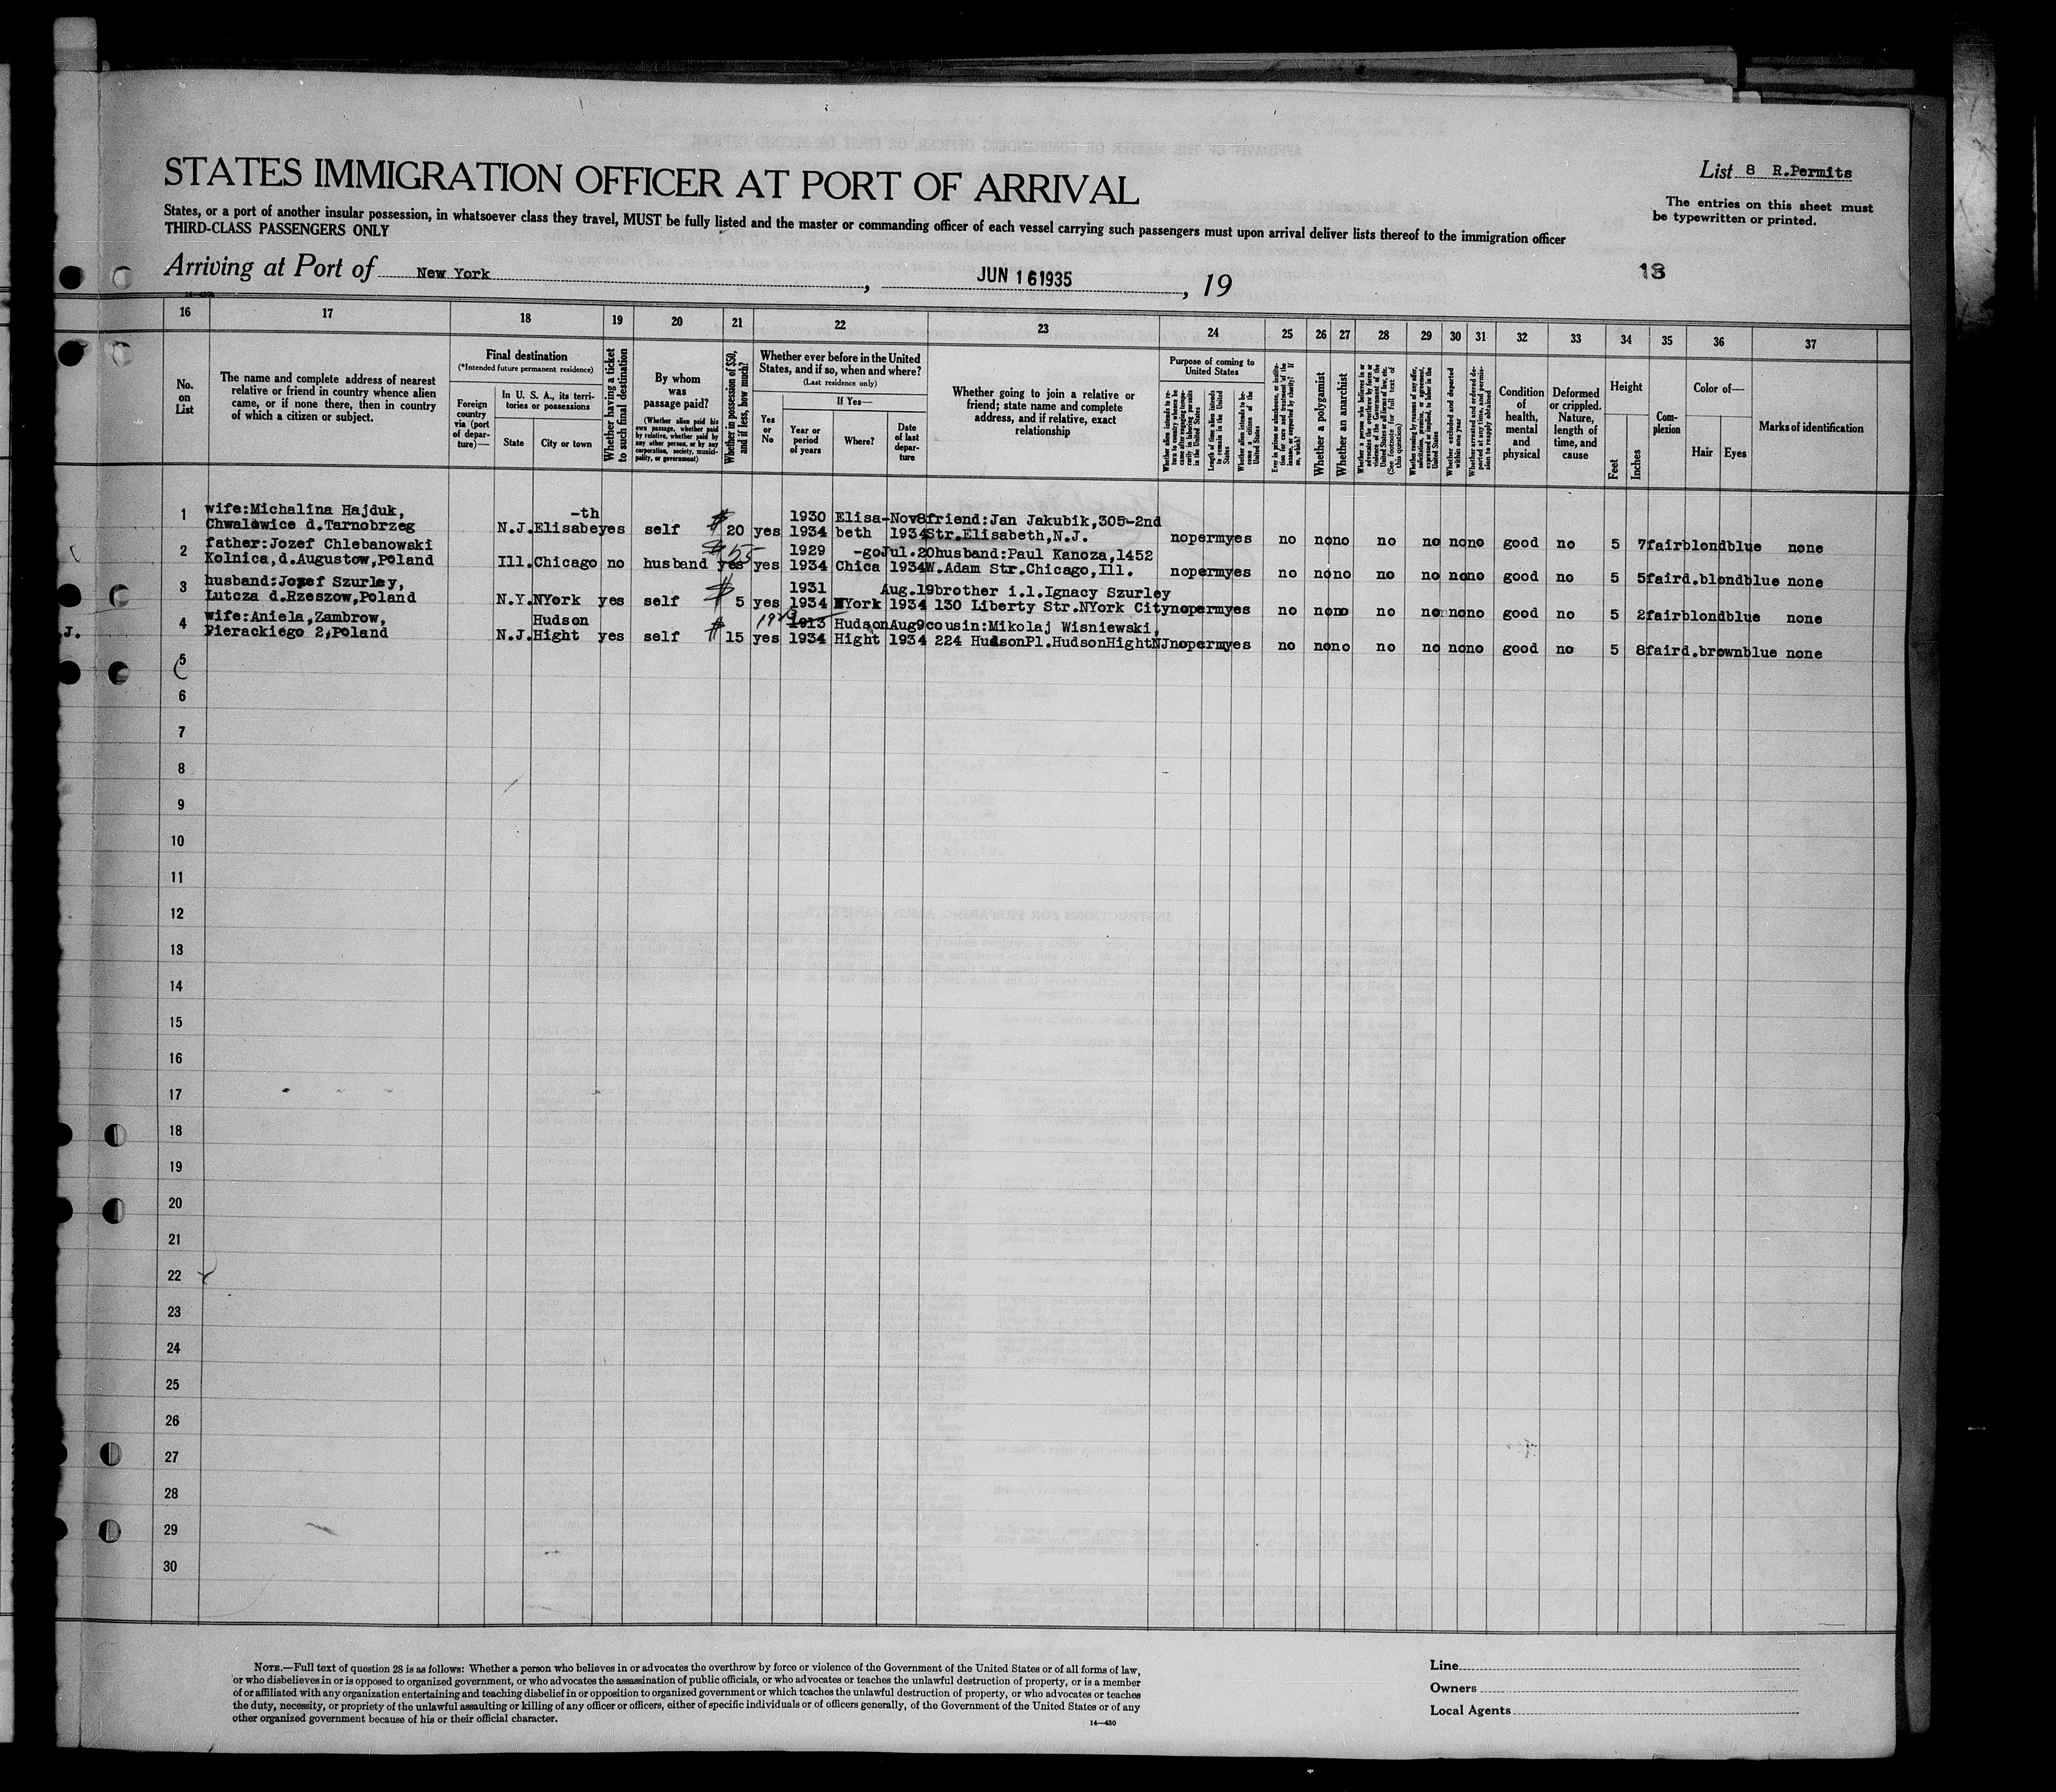 STATES IMMIGRATION OFFICER AT PORT OF ARRIVAL
List 8 R.Permits
The entries on this sheet must
be typewritten or printed.
States, or a port of another insular possession, in whatsoever class they travel, MUST be fully listed and the master or commanding officer of each vessel carrying such passengers must upon arrival deliver lists thereof to the immigration officer
THIRD-CLASS PASSENGERS ONLY
Arriving at Port of New York, JUN 16 1935, 19
13
16 17 18 19 20 21 22 23 24 25 26 27 28 29 30 31 32 33 34 35 36 37
No.
on
List
The name and complete address of nearest
relative or friend in country whence alien
came, or if none there, then in country
of which a citizen or subject.
Final destination
(*Intended future permanent residence)
Foreign
country
via (port
of depar-
ture)—
In U. S. A., its terri-
tories or possessions
State
City or town
Whether having a ticket
to such final destination
By whom
was
passage paid?
(Whether alien paid his
own passage, whether paid
by relative, whether paid by
any other person, or by any
corporation, society, munici-
pality, or government)
Whether in possession of $50,
and if less, how much?
Whether ever before in the United
States, and if so, when and where?
(Last residence only)
Yes
or
No
If Yes—
Year or
period
of years
Where?
Date
of last
depar-
ture
Whether going to join a relative or
friend; state name and complete
address, and if relative, exact
relationship
Purpose of coming to
United States
Whether alien intends to re-
turn to country whence he
came after engaging tempo-
rarily in laboring pursuits
in the United States
Length of time alien intends
to remain in the United
States
Whether alien intends to be-
come a citizen of the
United States
Ever in prison or almshouse, or institu-
tion for care and treatment of the
insane, or supported by charity? If
so, which?
Whether a polygamist
Whether an anarchist
Whether a person who believes in or
advocates the overthrow by force or
violence of the Government of the
United States or all forms of law, etc.
(See footnote for full text of
this question)
Whether coming by reason of any offer,
solicitation, promise, or agreement,
expressed or implied, to labor in the
United States
Whether excluded and deported
within one year
Whether arrested and ordered de-
ported at any time, and permis-
sion to reapply obtained
Condition
of
health,
mental
and
physical
Deformed
or crippled.
Nature,
length of
time, and
cause
Height
Feet
Inches
Com-
plexion
Color of—
Hair
Eyes
Marks of identification
1 wife:Michalina Hajduk, -th 1930 Elisa- Nov8 friend:Jan Jakubik,305-2nd
Chwalowice d.Tarnobrzeg N.J. Elisabe yes self $ 20 yes 1934 beth 1934 Str.Elisabeth,N.J. no perm yes no no no no no no no good no 5 7 fair blond blue none
2 father:Jozef Chlebanowski $ 55 1929 -go Jul.20 husband:Paul Kanoza,1452
Kolnica,d.Augustow,Poland Ill. Chicago no husband yes yes 1934 Chica 1934 W.Adam Str.Chicago,Ill. no perm yes no no no no no no no good no 5 5 fair d.blond blue none
3 husband:Jozef Szurley, 1931 Aug.19 brother i.l.Ignacy Szurley
Lutcza d.Rzeszow,Poland N.Y. NYork yes self $ 5 yes 1934 NYork 1934 130 Liberty Str.NYork City no perm yes no no no no no no no good no 5 2 fair blond blue none
4 wife:Aniela,Zambrow, Hudson 1913 Hudson Aug9 cousin:Mikolaj Wisniewski,
Pierackiego 2,Poland N.J. Hight yes self $ 15 yes 1934 Hight 1934 224 HudsonPl.HudsonHightNJ no perm yes no no no no no no no good no 5 8 fair d.brown blue none
J.
5
6
7
8
9
10
11
12
13
14
15
16
17
18
19
20
21
22
23
24
25
26
27
28
29
30
NOTE.—Full text of question 28 is as follows: Whether a person who believes in or advocates the overthrow by force or violence of the Government of the United States or of all forms of law,
or who disbelieves in or is opposed to organized government, or who advocates the assassination of public officials, or who advocates or teaches the unlawful destruction of property, or is a member
of or affiliated with any organization entertaining and teaching disbelief in or opposition to organized government or which teaches the unlawful destruction of property, or who advocates or teaches
the duty, necessity, or propriety of the unlawful assaulting or killing of any officer or officers, either of specific individuals or of officers generally, of the Government of the United States or of any
other organized government because of his or their official character.
14—430
Line
Owners
Local Agents